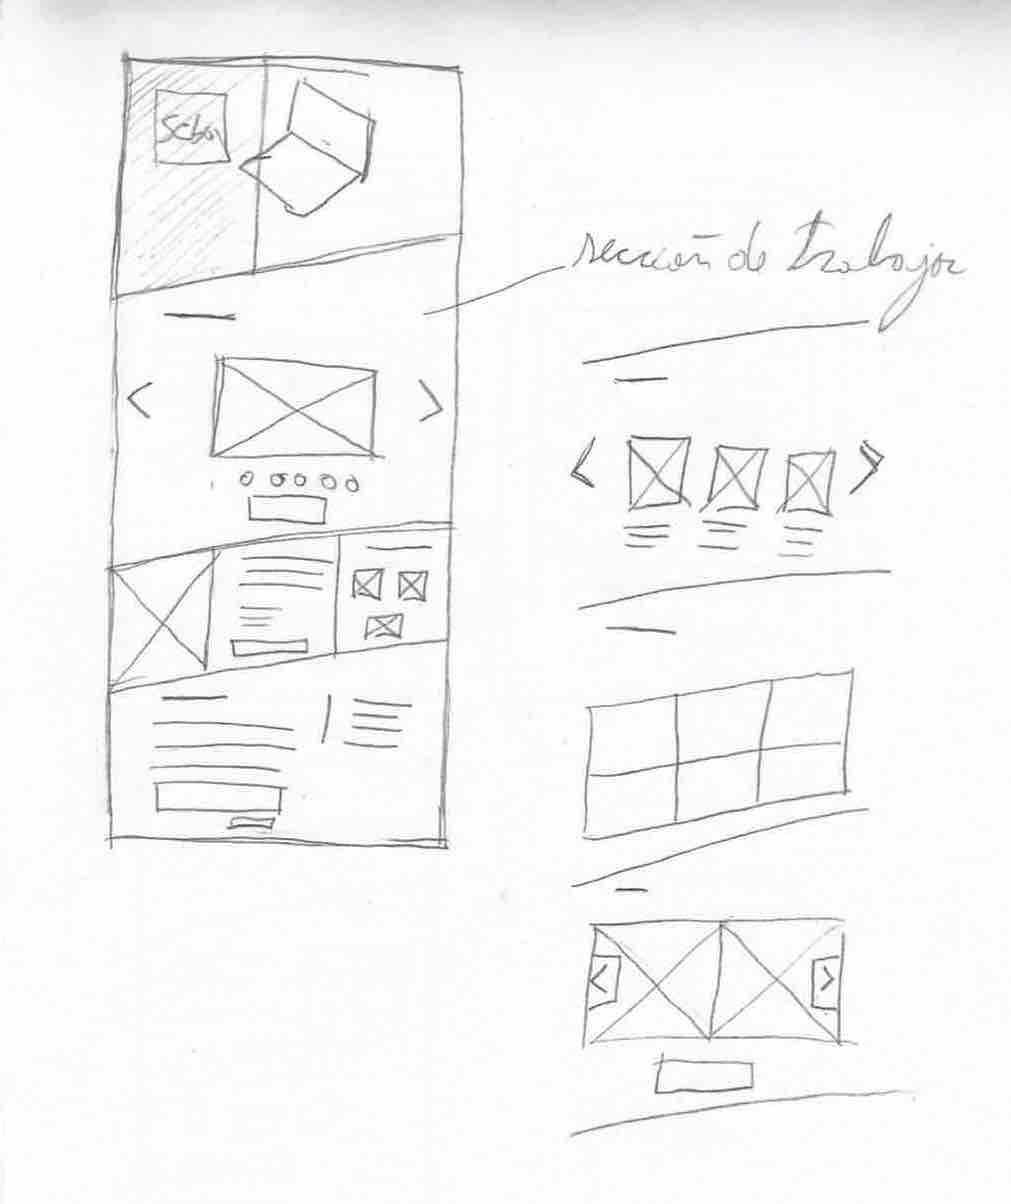 sección de trabajos